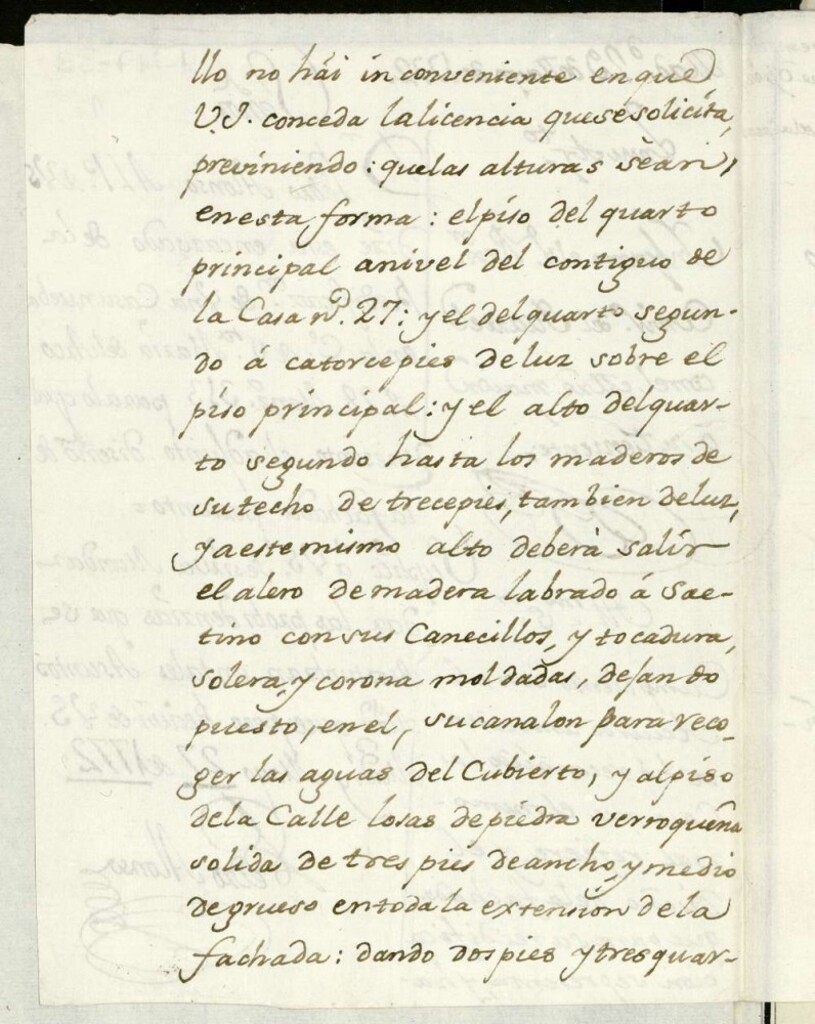 llo no hái inconveniente en que
V.I. conceda la licencia que se solicita,
previniendo: que las alturas sèan,
en esta forma: el piso del quarto
principal a nivel del contiguo de
la Casa nº. 27: y el del quarto segun-
do á catorce pies de luz sobre el
piso principal: y el alto del quar-
to segundo hasta los maderos de
su techo de trece pies, tambien de luz,
y a este mismo alto deberà salir
el alero de madera labrado á Sae-
tino con sus Canecillos, y tocadura,
solera, y corona moldadas, dejando
puesto, en el, su canalon para reco-
ger las aguas del Cubierto, y al piso
de la Calle losas de piedra verroqueña
solida de tres pies de ancho, y medio
de grueso en toda la extension de la
fachada: dando dos pies y tres quar-